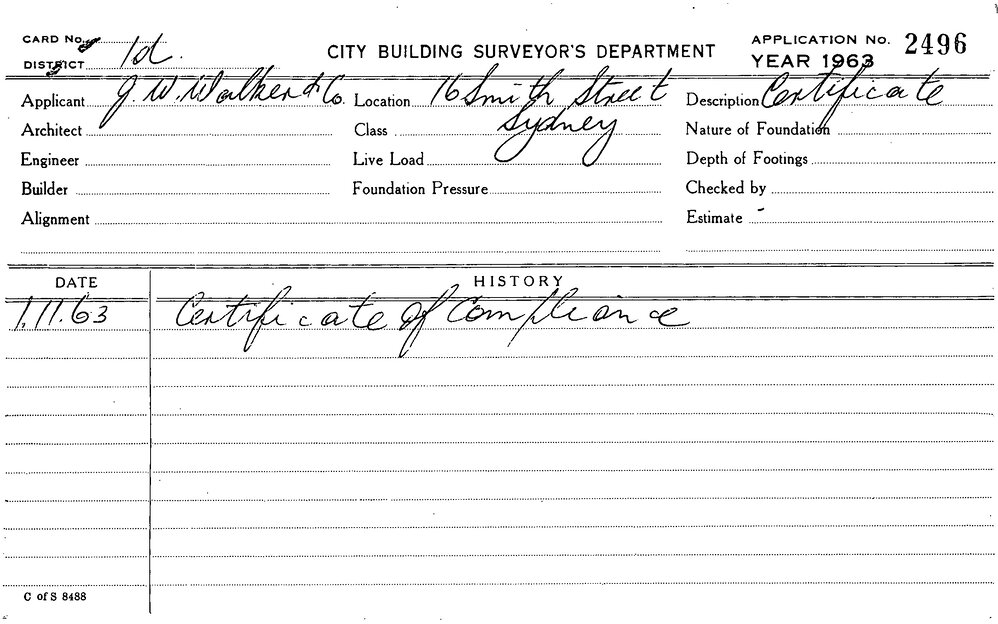 CARD No.
DISTRICT 1d.
CITY BUILDING SURVEYOR'S DEPARTMENT
APPLICATION No. 2496
YEAR 1963
Applicant J. W. Walker & Co. Location 16 Smith Street Description Certificate
Architect Class Sydney Nature of Foundation
Engineer Live Load Depth of Footings
Builder Foundation Pressure Checked by
Alignment Estimate -
DATE HISTORY
1.11.63 Certificate of Compliance
C of S 8488